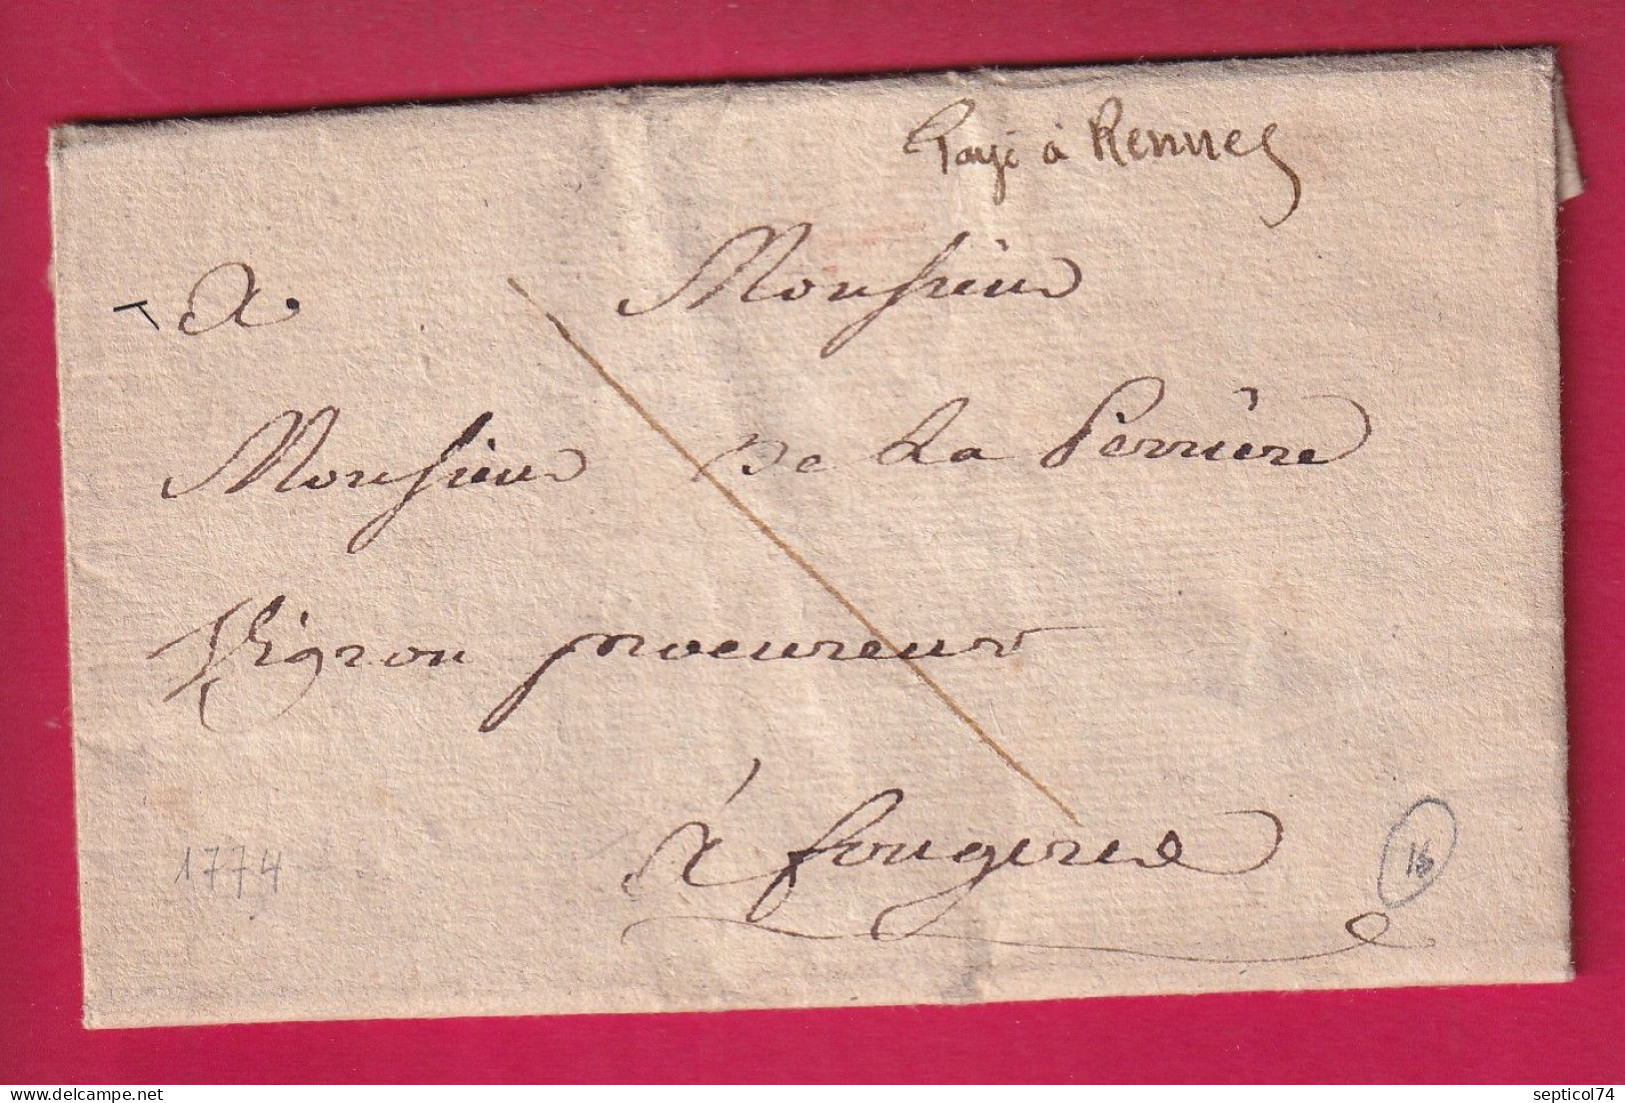 Payé à Rennes
A Monsieur
Monsieur de La Perrière
Vigron procureur
à fougeres
1774
16
septicol74